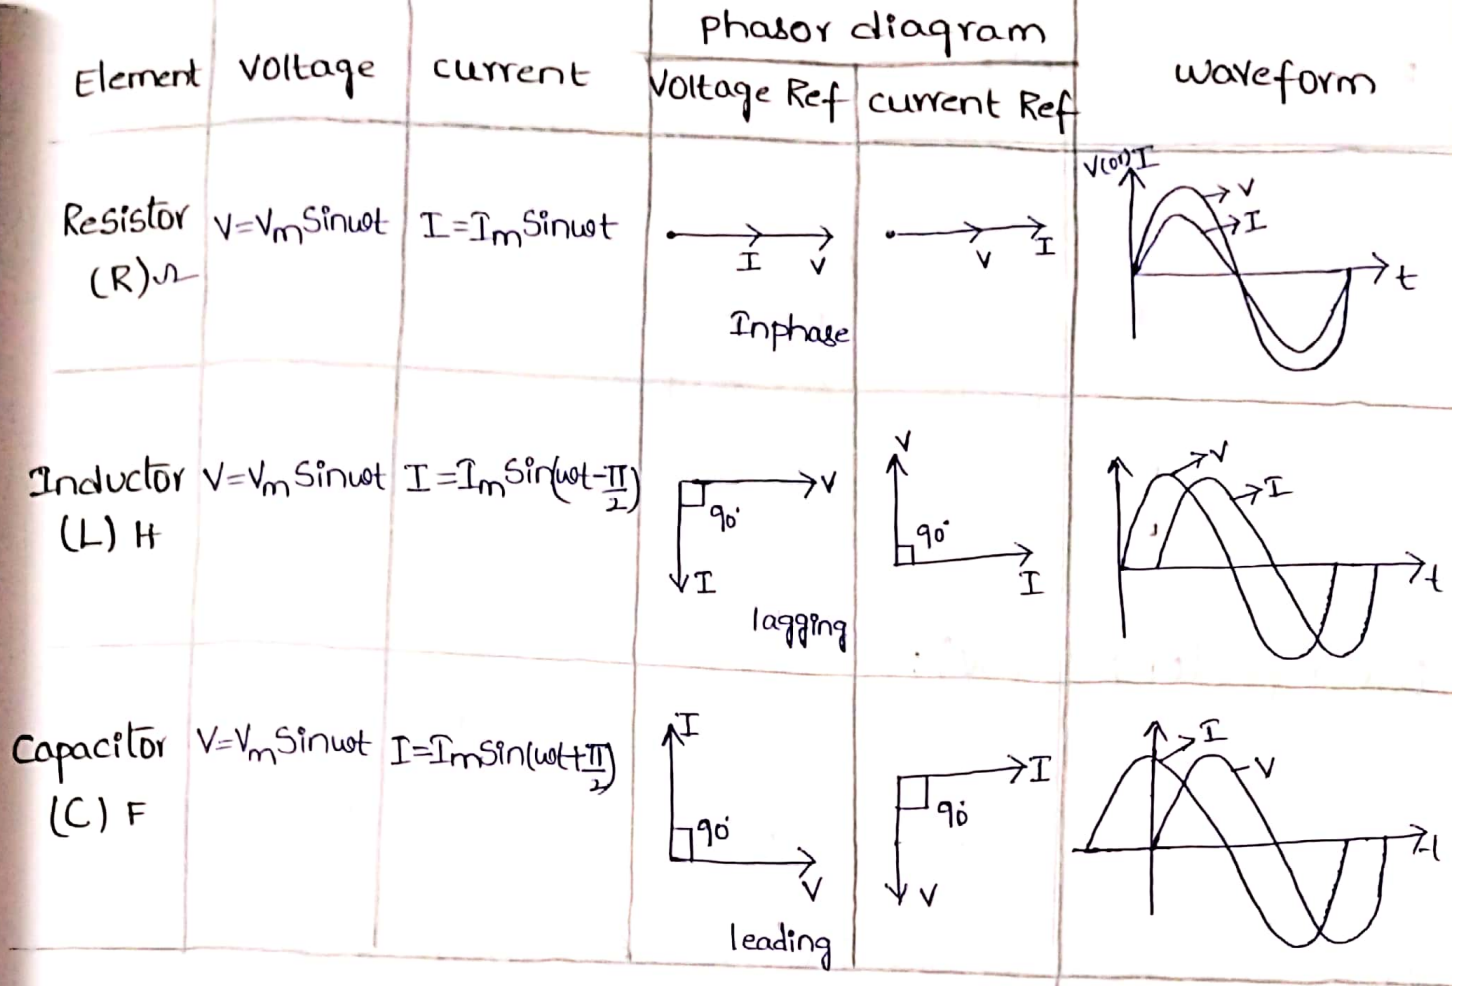 Element
Voltage
current
phasor diagram
Voltage Ref
current Ref
waveform
Resistor
(R)Ω
V=VmSinωt
I=ImSinωt
I V
Inphase
V I
V(or)I
V
I
t
Inductor
(L) H
V=VmSinωt
I=ImSin(ωt-π/2)
V
90°
I
lagging
V
90°
I
V
I
t
Capacitor
(C) F
V=VmSinωt
I=ImSin(ωt+π/2)
I
90°
V
leading
I
90°
V
I
V